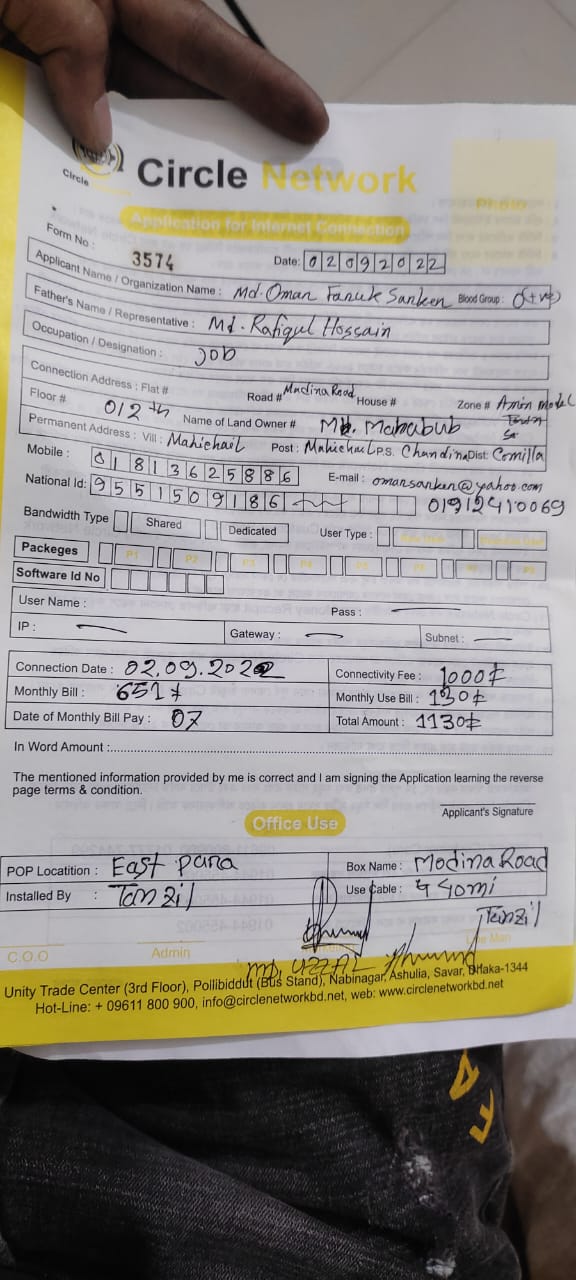 Circle
Circle Network
PHOTO
Application for Internet Connection
Form No : 3574 Date: 02092022
Applicant Name / Organization Name : Md. Oman Faruk Sarken Blood Group : O(+ve)
Father's Name / Representative : Md. Rafiqul Hossain
Occupation / Designation : Job
Connection Address : Flat # Road # Madina Road House # Zone # Amin model Town
Floor # 012th Name of Land Owner # Mahabub
Permanent Address : Vill : Mahichail Post : Mahichail P.S. Chandina Dist: Comilla
Mobile : 01813625886 E-mail : omarsarken@yahoo.com
National Id: 9551509186 01912410069
Bandwidth Type Shared Dedicated User Type :
Packeges P1 P2 P3 P4
Software Id No
User Name : Pass :
IP : Gateway : Subnet :
Connection Date : 02.09.2022 Connectivity Fee : 1000
Monthly Bill : 651 Monthly Use Bill : 130
Date of Monthly Bill Pay : 07 Total Amount : 1130
In Word Amount :
The mentioned information provided by me is correct and I am signing the Application learning the reverse
page terms & condition.
Applicant's Signature
Office Use
POP Locatition : East para Box Name : Modina Road
Installed By : Tanzil Use Cable : 40mi
Tanzil
C.O.O Admin Line Man
MD. UZZAL
Unity Trade Center (3rd Floor), Pollibiddut (Bus Stand), Nabinagar, Ashulia, Savar, Dhaka-1344
Hot-Line: + 09611 800 900, info@circlenetworkbd.net, web: www.circlenetworkbd.net